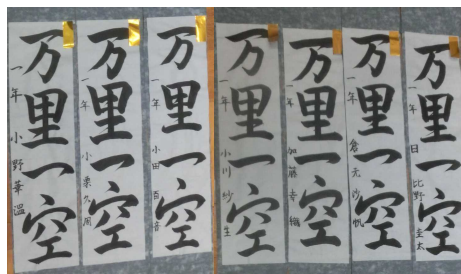 万里一空
一年 小野華温
万里一空
一年 小栗久周
万里一空
一年 小田百音
万里一空
一年 小川紗生
万里一空
一年 加藤寺綸
万里一空
一年 倉元沙帆
万里一空
一年 日比野圭太